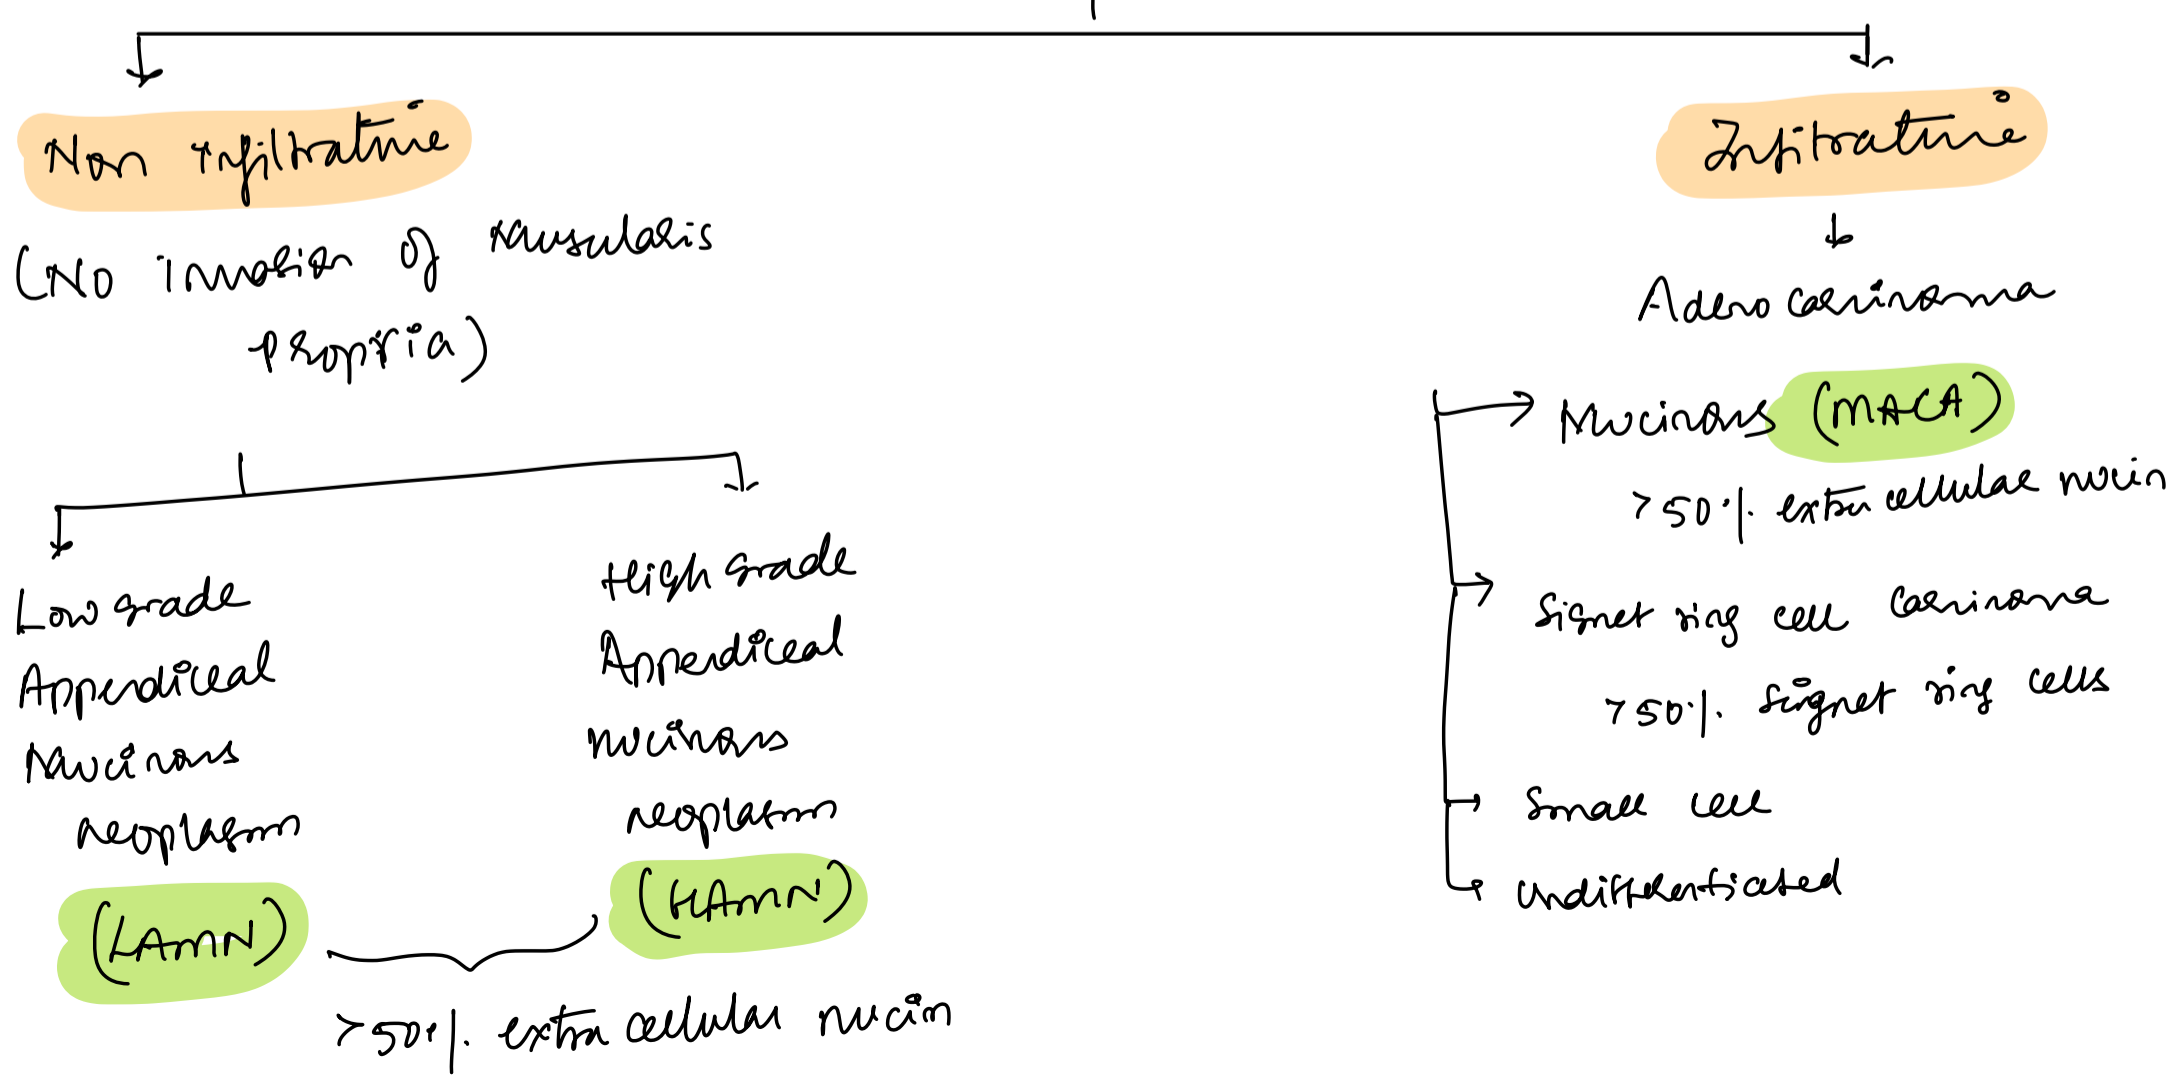 Non infiltrative
(No invasion of muscularis
propria)
Low grade
Appendiceal
Mucinous
neoplasm
(LAMN)
High grade
Appendiceal
mucinous
neoplasm
(HAMN)
>50% extra cellular mucin
Infitrative
Adeno carcinoma
Mucinous (MACA)
>50% extra cellular mucin
Signet ring cell Carcinoma
>50% Signet ring cells
Small cell
Undifferentiated